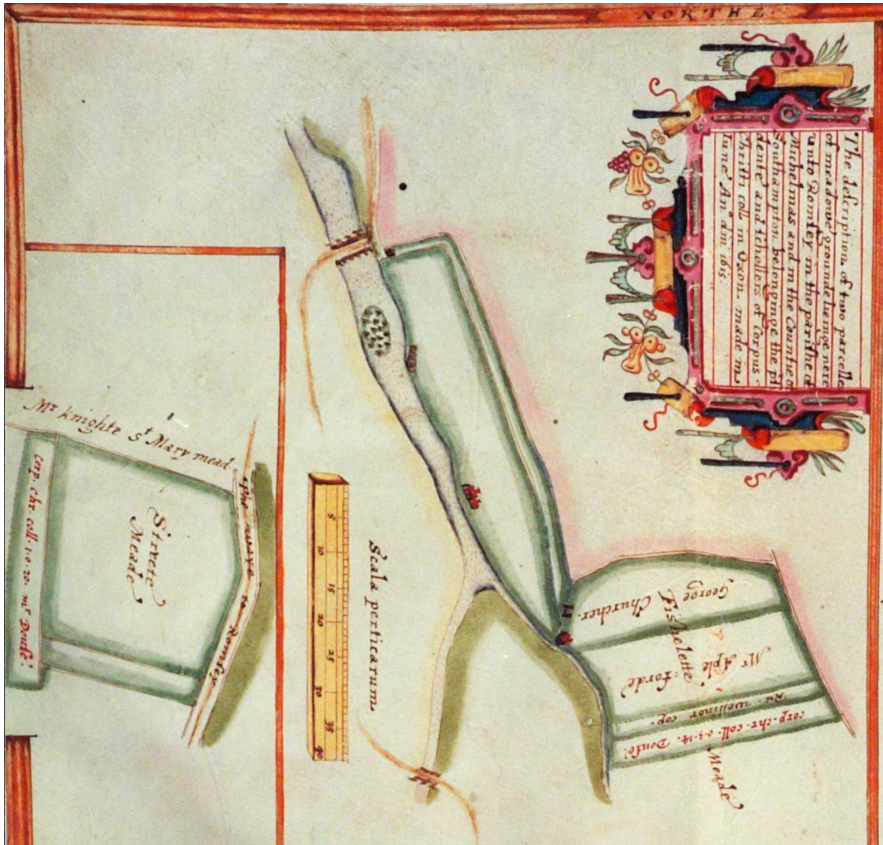 NORTHE
The description of two parcelle
of meadowe ground lieinge nere
unto Romsey in the parishe of
Michelmas and in the Countie of
Southampton belonginge the
dente and schollers of Corpus
Christi coll in Oxon. made in
June An° dm 1615
Mr knighte St Mary mead
The waye to Romsey
Streete
Meade
corp. chr. coll. 1. 0. 20. mr Douse.
Scala perticarum
5
10
15
20
25
30
35
40
George
Churcher.
Fishelette
Mr Aple
forde
Ru. wellmor cop.
corp. chr. coll. 0. 3. 14. Douse.
Meade